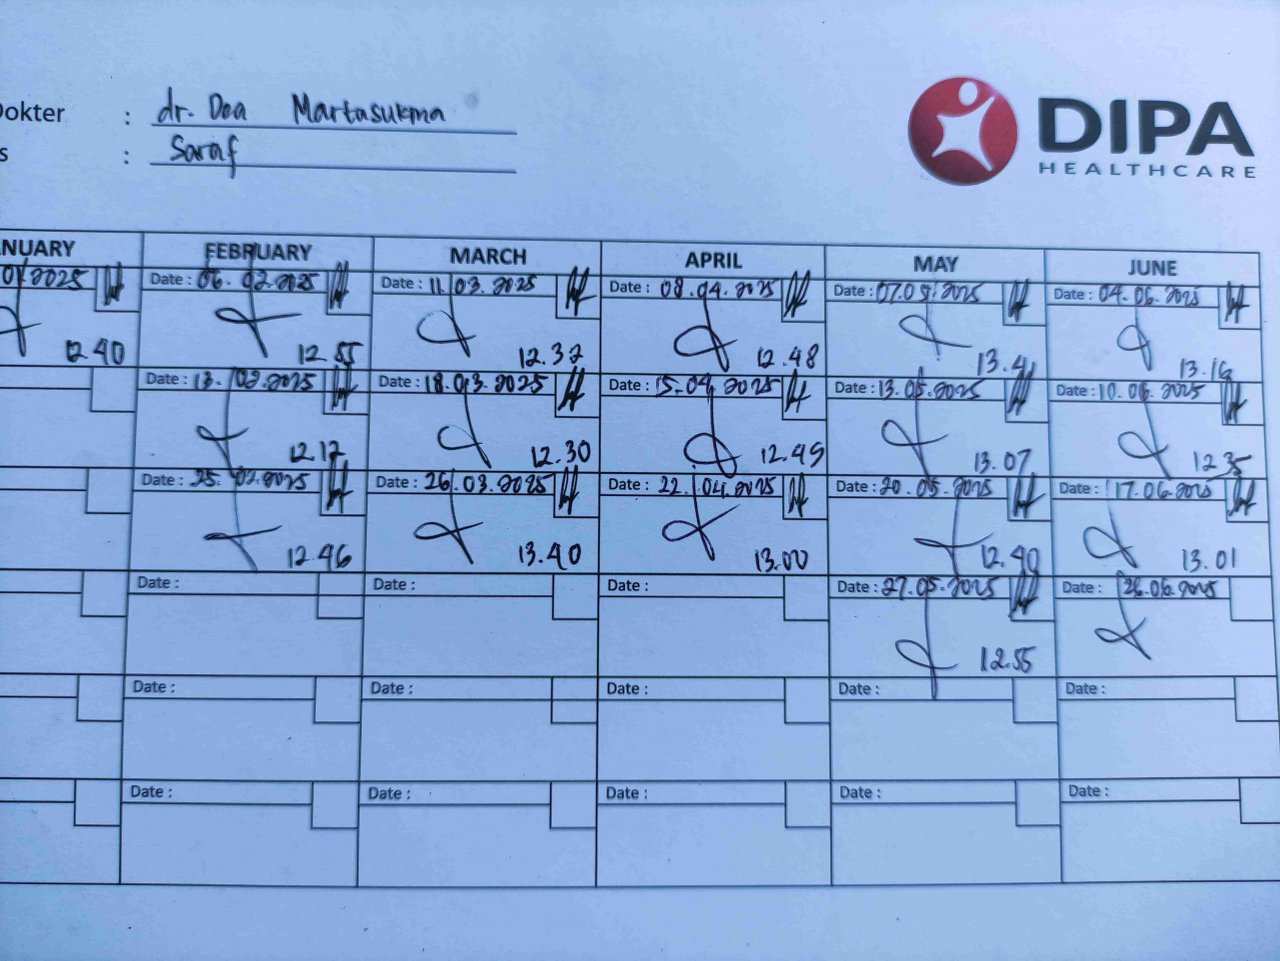 Dokter : dr. Doa Martasukma
s : Saraf
DIPA
HEALTHCARE
NUARY FEBRUARY MARCH APRIL MAY JUNE
2025 Date : 06. 02.2025 Date : 11.03.2025 Date : 08.04.2025 Date : 07.05.2025 Date : 04.06.2025
12.40 12.55 12.32 12.48 13.4 13.16
Date : 13. 02.2025 Date : 18.03.2025 Date : 15.04.2025 Date : 13.05.2025 Date : 10.06.2025
12.12 12.30 12.45 13.07 12.35
Date : 25. 02.2025 Date : 26.03.2025 Date : 22.04.2025 Date : 20.05.2025 Date : 17.06.2025
12.46 13.40 13.00 12.40 13.01
Date : Date : Date : Date : 27.05.2025 Date : 26.06.2025
12.55
Date : Date : Date : Date : Date :
Date : Date : Date : Date : Date :